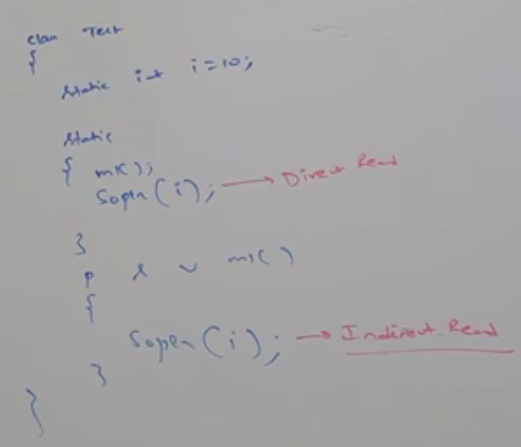 class Test
{
static int i=10;
static
{ m1();
Sopln(i); → Direct Read
}
p s v m1()
{
Sopln(i); → Indirect Read
}
}